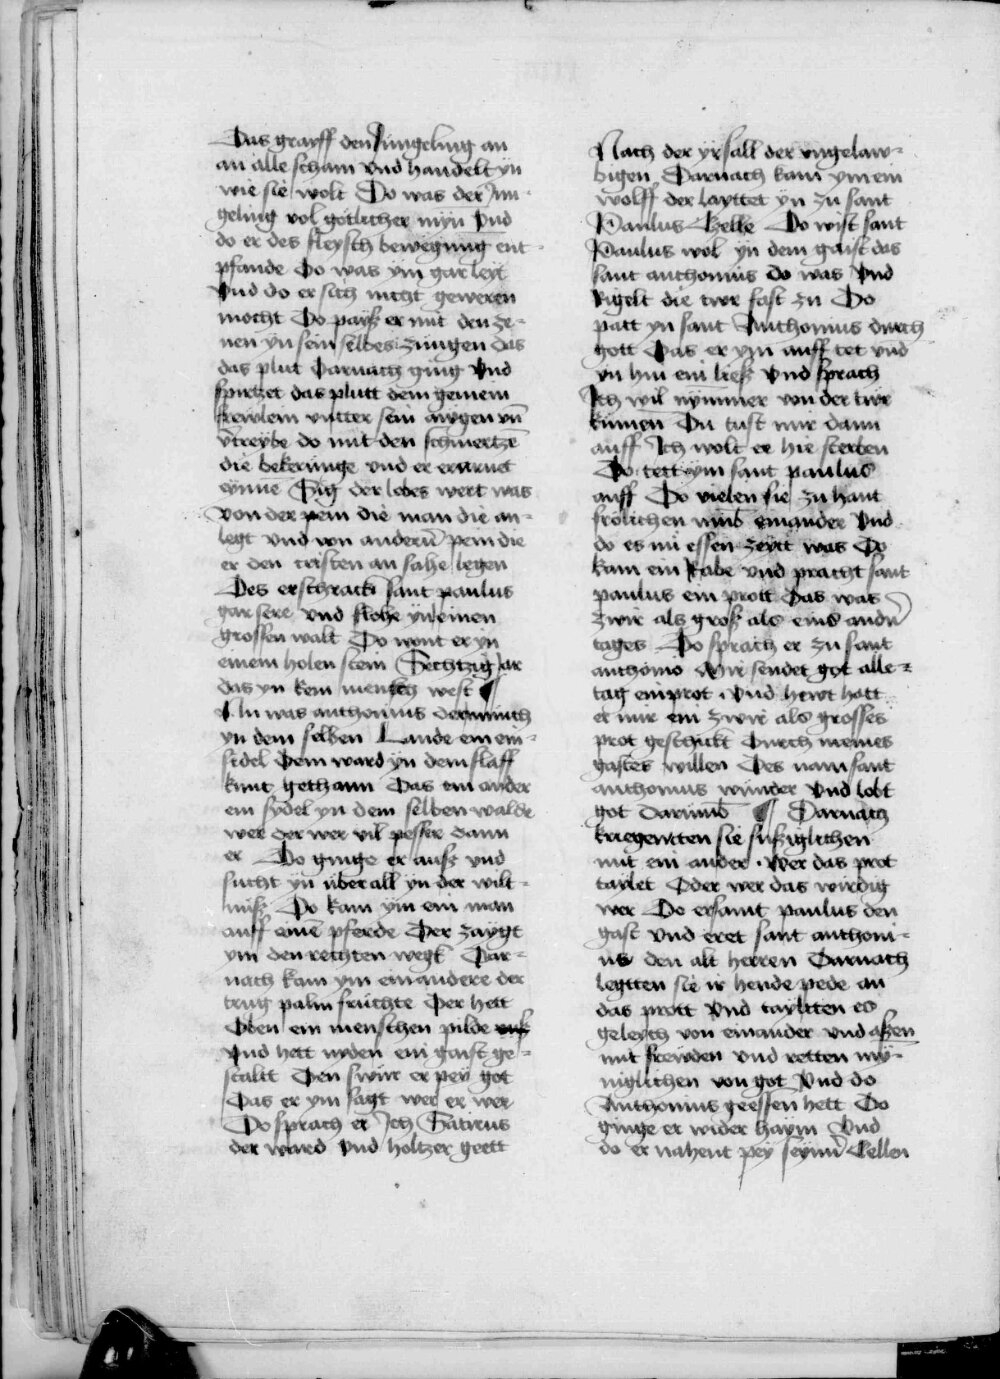 Das graiff den Jüngeling an
an alle scham vnd handelt yn
wie sie wolt Do was der Jun-
geling vol gotlicher myn Vnd
do er des fleysch bewegung ent-
pfande Do was ym gar leyt
Vnd do er sich nicht geweren
mocht Do payß er mit den ze-
nen yn sein selbes zungen das
das plut Darnach ging Vnd
spurtzet das plutt dem gemein
frewlein vntter sein awgen vn̄
v̄treybe do mit den schmertzē
die bekerunge vnd er
eynne Sig der lobes wert was
Von der pein die man die an-
legt Vnd von anderū pein die
er den cristen an sahe legen
Des erschrack sant paulus
gar sere vnd flohe yn einen
grossen walt Do wont er yn
einem holen stein Sechtzig Jar
das yn kein mensch west ¶
Nu was anthonius dennnich
yn dem selben Lande ein ein-
sidel Dem ward yn dem slaff
kunt gethann Das ein ander
ein sydel yn dem selben walde
wer der wer vil pesser dann
er Do ginge er auß vnd
sucht yn uberall yn der wilt-
nuß Do kam ym ein man
auff einē pferde Der zaygt
ym den rechten wegk Dar-
nach kam ym ein andere der
trug palm fruchte Der hett
Oben ein menschen pilde
Vnd hett nyden ein gaist ge-
staltt Den swur er pey got
Das er ym sagt wer er wer
Do sprach er Ich Satirus
der ward Vnd holtzer geett
Nach der yrsall der vngelaw-
bigen Darnach kam ym ein
wolff der layttet yn zu sant
Paulus Zelle Do wist sant
Paulus wol yn dem gaist das
sant anthonius do was Vnd
rigelt die twr fast zu Do
patt yn sant Anthonius durch
gott Das er ym auff tet vnd
yn hin ein ließ Vnd sprach
Ich wil nymmer von der twr
kumen Du tust mir dann
auff Ich wolt er hie sterben
Do tett ym sant paulus
auff Do vielen sie zu hant
frolichen vmb einander Vnd
do es nu essen zeytt was Do
kam ein Rabe vnd pracht sant
paulus ein prott Das was
zwir als groß als eins andn̄
tages Do sprach er zu sant
anthonio Mir sendet got alle-
tag ein prot . Vnd hewt hott
er mir ein zwir als grosses
prot geschickt Durch meines
gastes willen Des nam sant
anthonius wunder Vnd lobt
got Darumb ¶ Darnach
kriegentten sie sußiglichen
mit ein ander . Wer das prot
taylet Oder wer das wirdig
wer Do ersamt paulus den
gast Vnd eret sant anthoni-
us den alt herren Darnach
legtten sie ir hende pede an
das prott Vnd tayltten es
geleych von einander vnd assen
mit frewden vnd retten my-
niglichen von got Vnd do
Anthonius geessen hett Do
ginge er wider haym Vnd
do er nahent pey seynn̄ Cellen